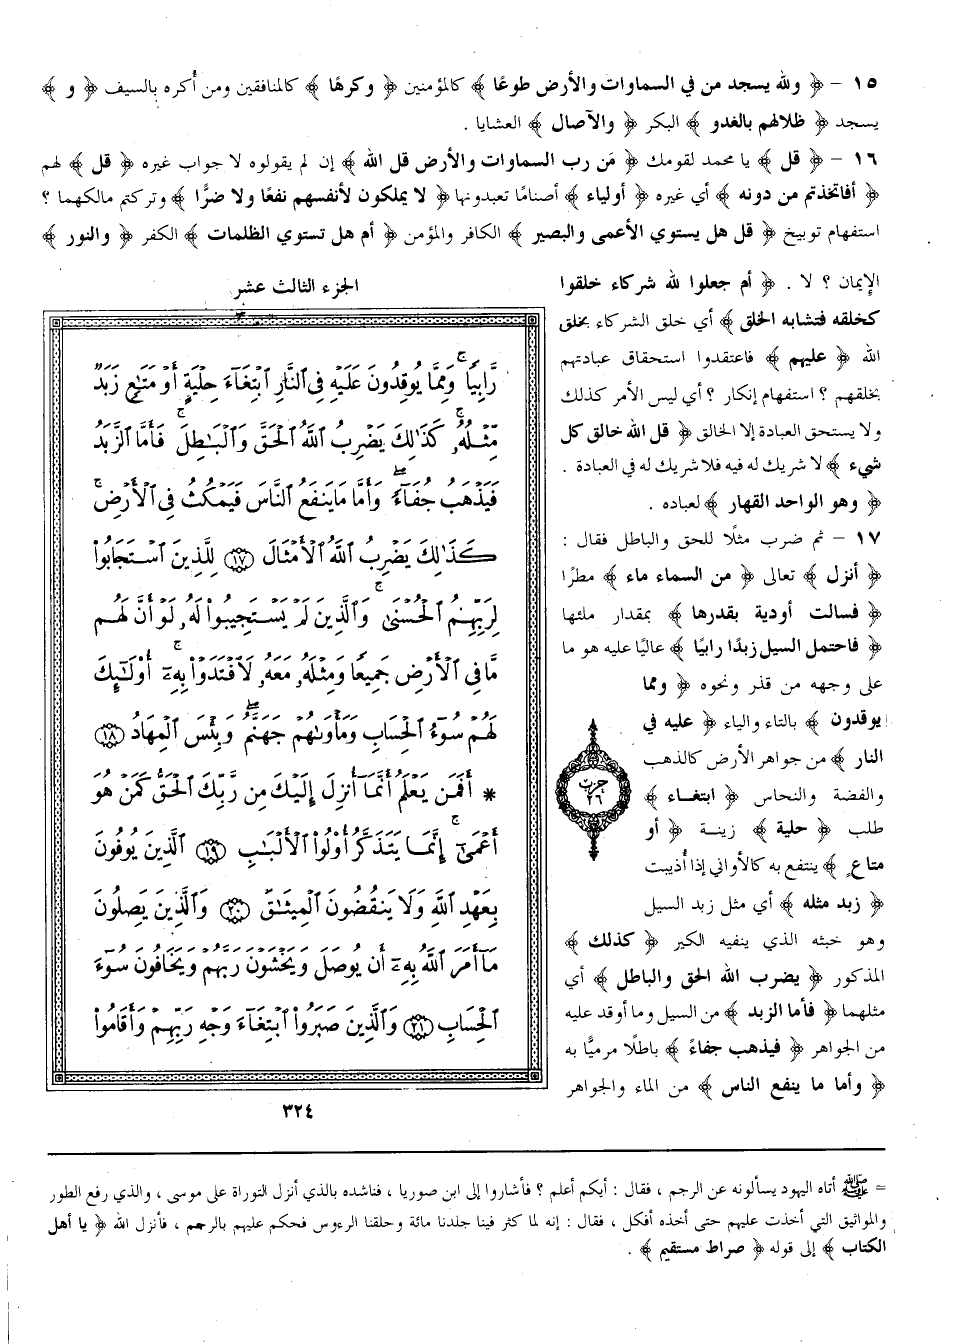 ١٥ - ﴿ ولله يسجد من في السماوات والأرض طوعًا ﴾ كالمؤمنين ﴿ وكرهًا ﴾ كالمنافقين ومن أُكره بالسيف ﴿ و ﴾
يسجد ﴿ ظلالهم بالغدو ﴾ البكر ﴿ والآصال ﴾ العشايا .
١٦ - ﴿ قل ﴾ يا محمد لقومك ﴿ مَن رب السماوات والأرض قل الله ﴾ إن لم يقولوه لا جواب غيره ﴿ قل ﴾ لهم
﴿ أفاتخذتم من دونه ﴾ أي غيره ﴿ أولياء ﴾ أصنامًا تعبدونها ﴿ لا يملكون لأنفسهم نفعًا ولا ضرًّا ﴾ وتركتم مالكهما ؟
استفهام توبيخ ﴿ قل هل يستوي الأعمى والبصير ﴾ الكافر والمؤمن ﴿ أم هل تستوي الظلمات ﴾ الكفر ﴿ والنور ﴾
الإيمان ؟ لا . ﴿ أم جعلوا لله شركاء خلقوا
كخلقه فتشابه الخلق ﴾ أي خلق الشركاء بخلق
الله ﴿ عليهم ﴾ فاعتقدوا استحقاق عبادتهم
بخلقهم ؟ استفهام إنكار ؟ أي ليس الأمر كذلك
ولا يستحق العبادة إلا الخالق ﴿ قل الله خالق كل
شيء ﴾ لا شريك له فيه فلا شريك له في العبادة .
﴿ وهو الواحد القهار ﴾ لعباده .
١٧ - ثم ضرب مثلًا للحق والباطل فقال :
﴿ أنزل ﴾ تعالى ﴿ من السماء ماء ﴾ مطرًا
﴿ فسالت أودية بقدرها ﴾ بمقدار ملئها
﴿ فاحتمل السيل زبدًا رابيًا ﴾ عاليًا عليه هو ما
على وجهه من قذر ونحوه ﴿ ومما
يوقدون ﴾ بالتاء والياء ﴿ عليه في
النار ﴾ من جواهر الأرض كالذهب
والفضة والنحاس ﴿ ابتغاء ﴾
طلب ﴿ حلية ﴾ زينة ﴿ أو
متاع ﴾ ينتفع به كالأواني إذا أُذيبت
﴿ زبد مثله ﴾ أي مثل زبد السيل
وهو خبثه الذي ينفيه الكير ﴿ كذلك ﴾
المذكور ﴿ يضرب الله الحق والباطل ﴾ أي
مثلهما ﴿ فأما الزبد ﴾ من السيل وما أوقد عليه
من الجواهر ﴿ فيذهب جفاءً ﴾ باطلًا مرميًّا به
﴿ وأما ما ينفع الناس ﴾ من الماء والجواهر
الجزء الثالث عشر
رَّابِيًا وَمِمَّا يُوقِدُونَ عَلَيْهِ فِي النَّارِ ابْتِغَاءَ حِلْيَةٍ أَوْ مَتَاعٍ زَبَدٌ
مِّثْلُهُ كَذَٰلِكَ يَضْرِبُ اللَّهُ الْحَقَّ وَالْبَاطِلَ فَأَمَّا الزَّبَدُ
فَيَذْهَبُ جُفَاءً وَأَمَّا مَا يَنفَعُ النَّاسَ فَيَمْكُثُ فِي الْأَرْضِ
كَذَٰلِكَ يَضْرِبُ اللَّهُ الْأَمْثَالَ ١٧ لِلَّذِينَ اسْتَجَابُوا
لِرَبِّهِمُ الْحُسْنَىٰ وَالَّذِينَ لَمْ يَسْتَجِيبُوا لَهُ لَوْ أَنَّ لَهُم
مَّا فِي الْأَرْضِ جَمِيعًا وَمِثْلَهُ مَعَهُ لَافْتَدَوْا بِهِ أُولَٰئِكَ
لَهُمْ سُوءُ الْحِسَابِ وَمَأْوَاهُمْ جَهَنَّمُ وَبِئْسَ الْمِهَادُ ١٨
* أَفَمَن يَعْلَمُ أَنَّمَا أُنزِلَ إِلَيْكَ مِن رَّبِّكَ الْحَقُّ كَمَنْ هُوَ
أَعْمَىٰ إِنَّمَا يَتَذَكَّرُ أُولُوا الْأَلْبَابِ ١٩ الَّذِينَ يُوفُونَ
بِعَهْدِ اللَّهِ وَلَا يَنقُضُونَ الْمِيثَاقَ ٢٠ وَالَّذِينَ يَصِلُونَ
مَا أَمَرَ اللَّهُ بِهِ أَن يُوصَلَ وَيَخْشَوْنَ رَبَّهُمْ وَيَخَافُونَ سُوءَ
الْحِسَابِ ٢١ وَالَّذِينَ صَبَرُوا ابْتِغَاءَ وَجْهِ رَبِّهِمْ وَأَقَامُوا
حزب
٢٦
٣٢٤
= ﷺ أتاه اليهود يسألونه عن الرجم ، فقال : أيكم أعلم ؟ فأشاروا إلى ابن صوريا ، فناشده بالذي أنزل التوراة على موسى ، والذي رفع الطور
والمواثيق التي أخذت عليهم حتى أخذه أفكل ، فقال : إنه لما كثر فينا جلدنا مائة وحلقنا الرءوس فحكم عليهم بالرجم ، فأنزل الله ﴿ يا أهل
الكتاب ﴾ إلى قوله ﴿ صراط مستقيم ﴾ .